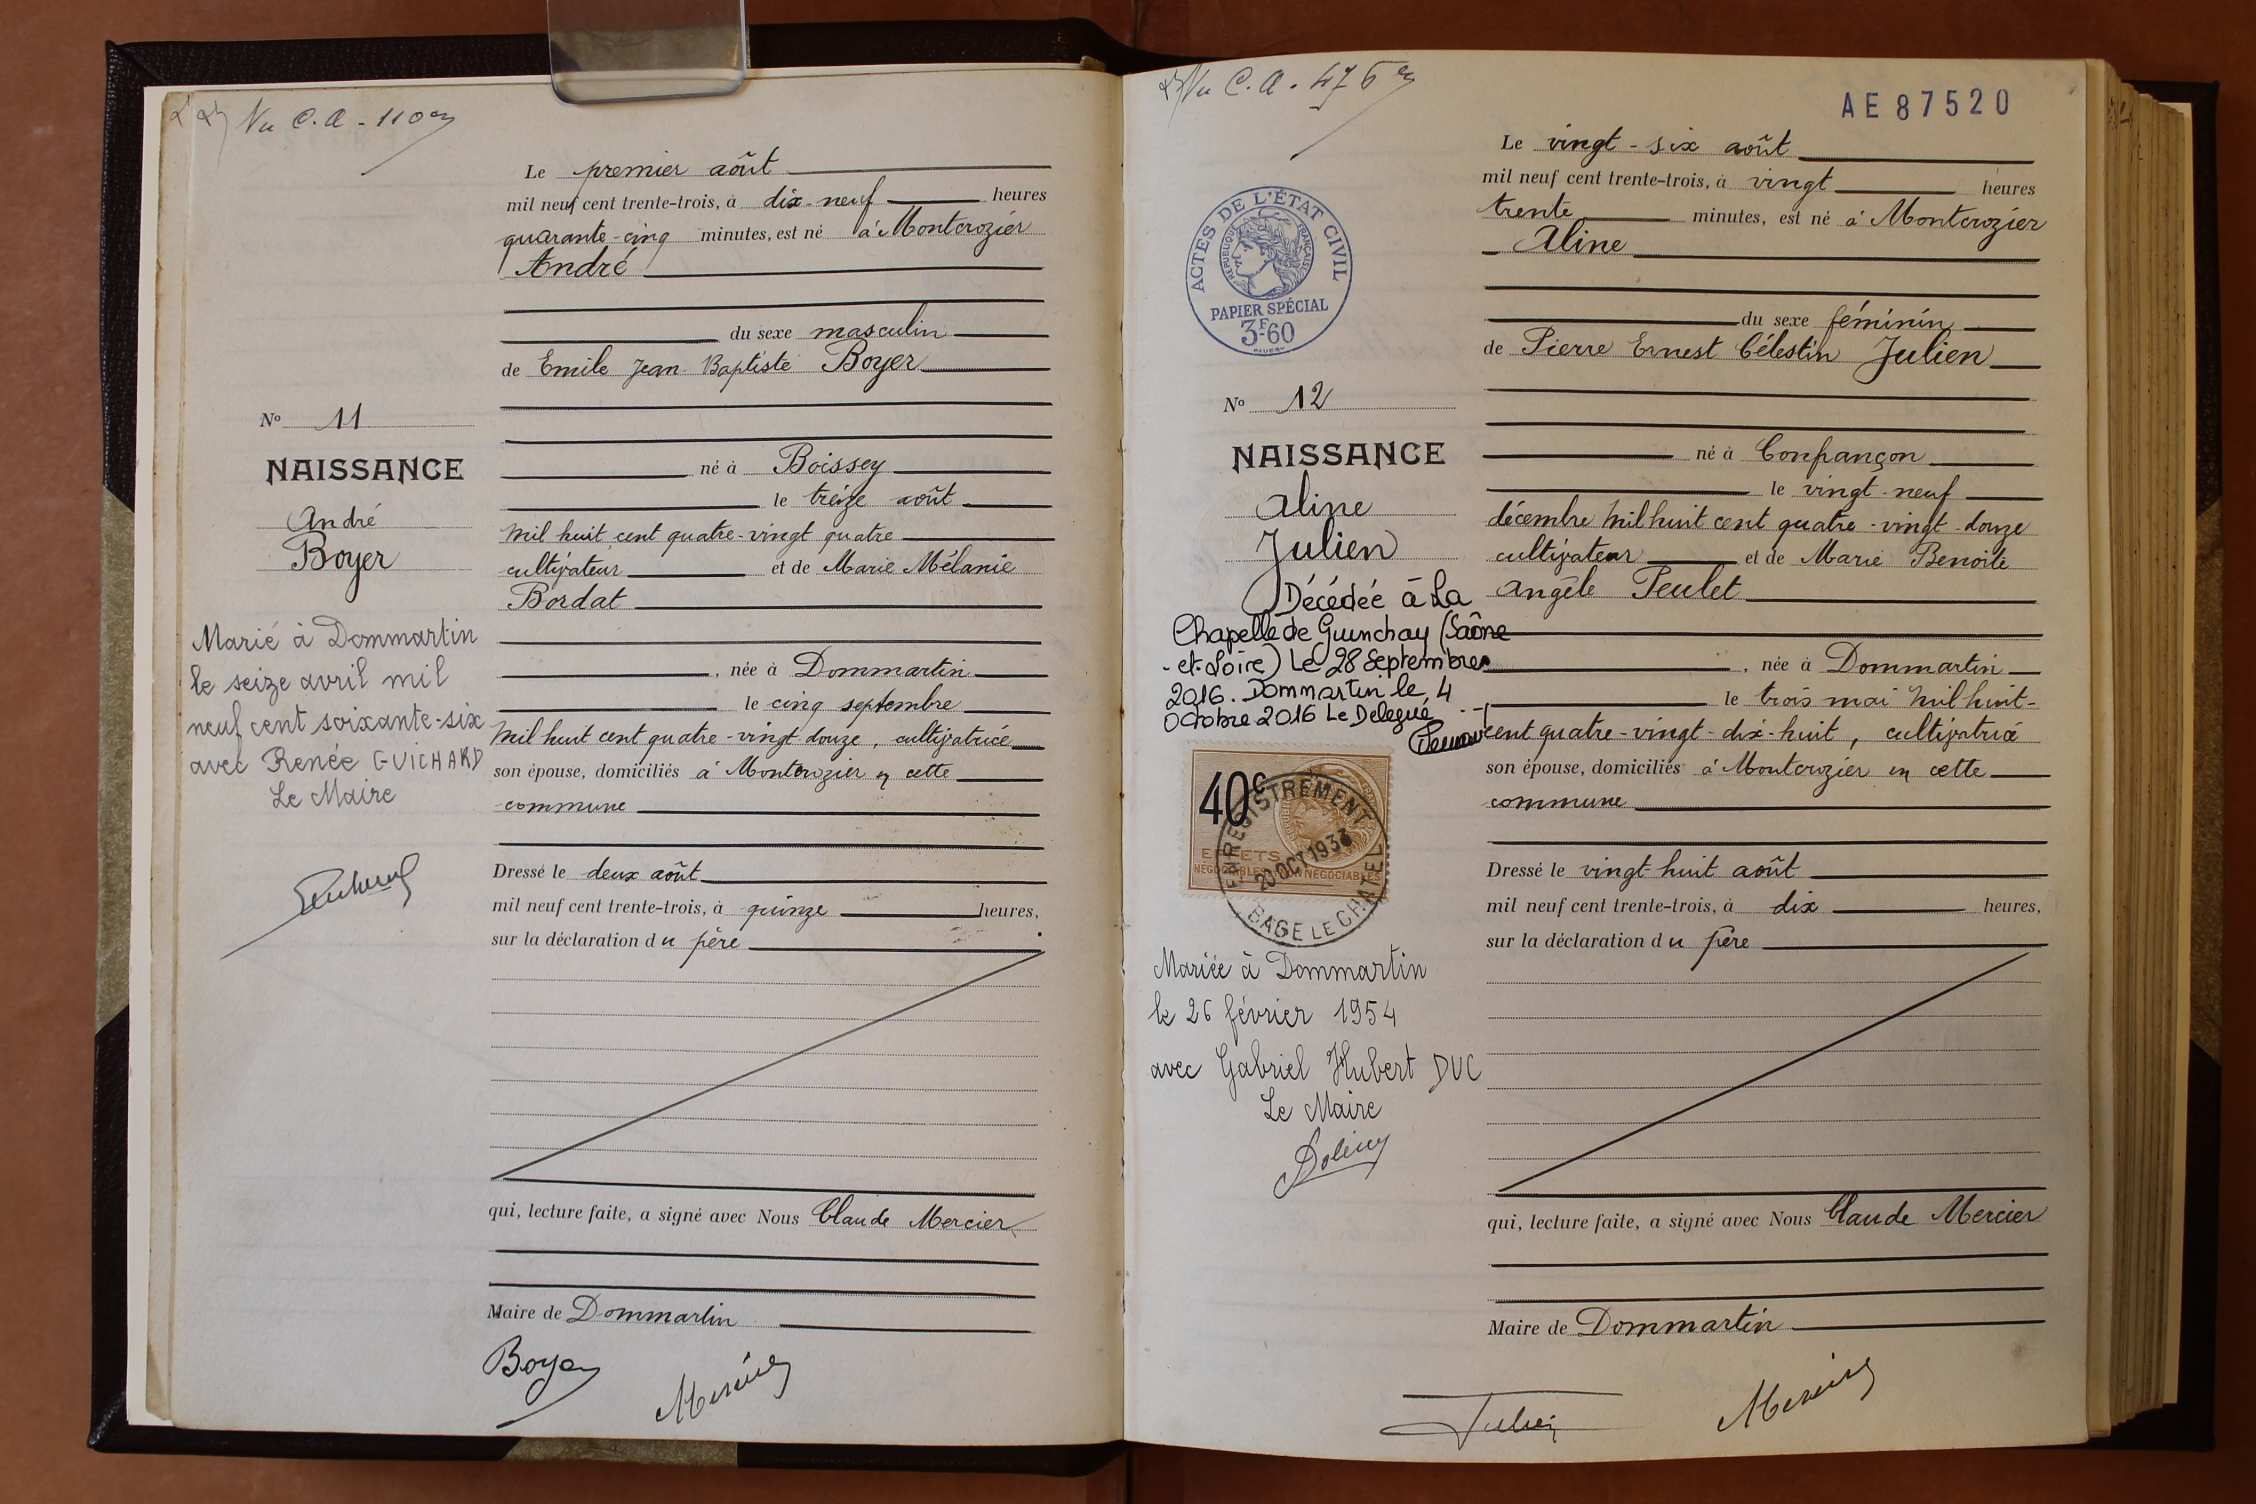 Vu C.A. 110
Le premier août
mil neuf cent trente-trois, à dix-neuf heures
quarante-cinq minutes, est né à Montcrozier
André
du sexe masculin
de Emile Jean-Baptiste Boyer
né à Boissey
le treize août
mil huit cent quatre-vingt quatre
cultivateur et de Marie Mélanie
Bordat
, née à Dommartin
le cinq septembre
mil huit cent quatre-vingt-douze, cultivatrice
son épouse, domiciliés à Montcrozier en cette
commune
Dressé le deux août
mil neuf cent trente-trois, à quinze heures,
sur la déclaration du père
qui, lecture faite, a signé avec Nous Claude Mercier
Maire de Dommartin
Boyer
Mercier
No 11
NAISSANCE
André
Boyer
Marié à Dommartin
le seize avril mil
neuf cent soixante-six
avec Renée GUICHARD
Le Maire
Vu C.A. 476
AE 87520
Le vingt-six août
mil neuf cent trente-trois, à vingt heures
trente minutes, est né à Montcrozier
Aline
du sexe féminin
de Pierre Ernest Célestin Julien
né à Confrançon
le vingt-neuf
décembre mil huit cent quatre-vingt-douze
cultivateur et de Marie Benoite
Angèle Peulet
, née à Dommartin
le trois mai mil huit-
cent quatre-vingt-dix-huit, cultivatrice
son épouse, domiciliés à Montcrozier en cette
commune
Dressé le vingt-huit août
mil neuf cent trente-trois, à dix heures,
sur la déclaration du père
qui, lecture faite, a signé avec Nous Claude Mercier
Maire de Dommartin
Julien
Mercier
ACTES DE L'ÉTAT CIVIL
RÉPUBLIQUE FRANÇAISE
PAPIER SPÉCIAL
3F60
No 12
NAISSANCE
Aline
Julien
Décédée à La
Chapelle de Guinchay (Saône
-et-Loire) Le 28 Septembre
2016. Dommartin le 4
Octobre 2016 Le Delegué
40c
EFFETS
NÉGOCIABLES NON NÉGOCIABLES
ENREGISTREMENT
20 OCT 1933
BAGE LE CHATEL
Mariée à Dommartin
le 26 février 1954
avec Gabriel Hubert DUC
Le Maire